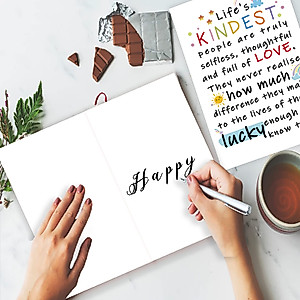 Life's
KINDEST
people are truly
selfless, thoughtful
and full of LOVE.
They never realise
how much
difference they ma
to the lives of tho
lucky enough
know t
Happy